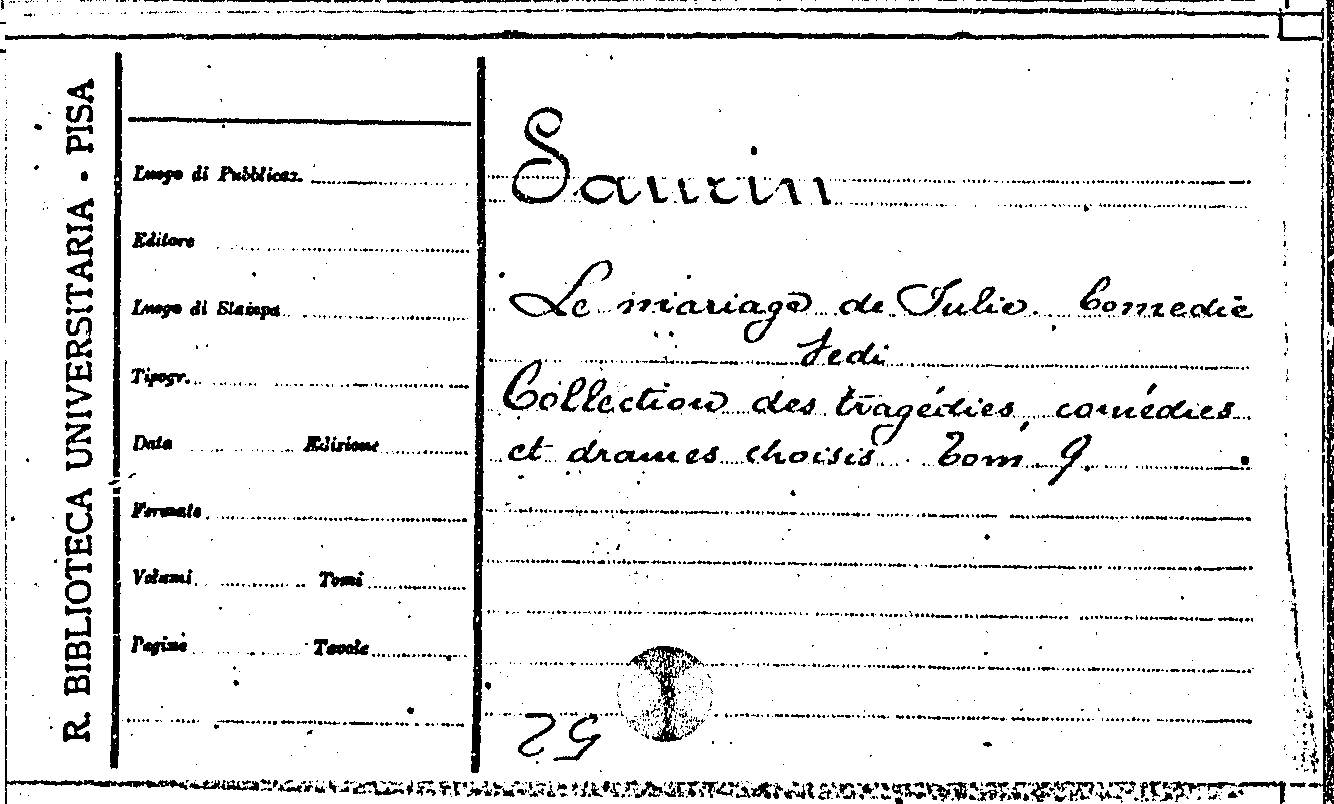 R. BIBLIOTECA UNIVERSITARIA - PISA
Luogo di Pubblicaz.
Editore
Luogo di Stampa
Tipogr.
Data Edizione
Formato
Volumi Tomi
Pagine Tavole
Saurin
Le mariage de Julie. Comedie
Vedi
Collection des tragédies, comédies
et drames choisis. Tom. 9.
52